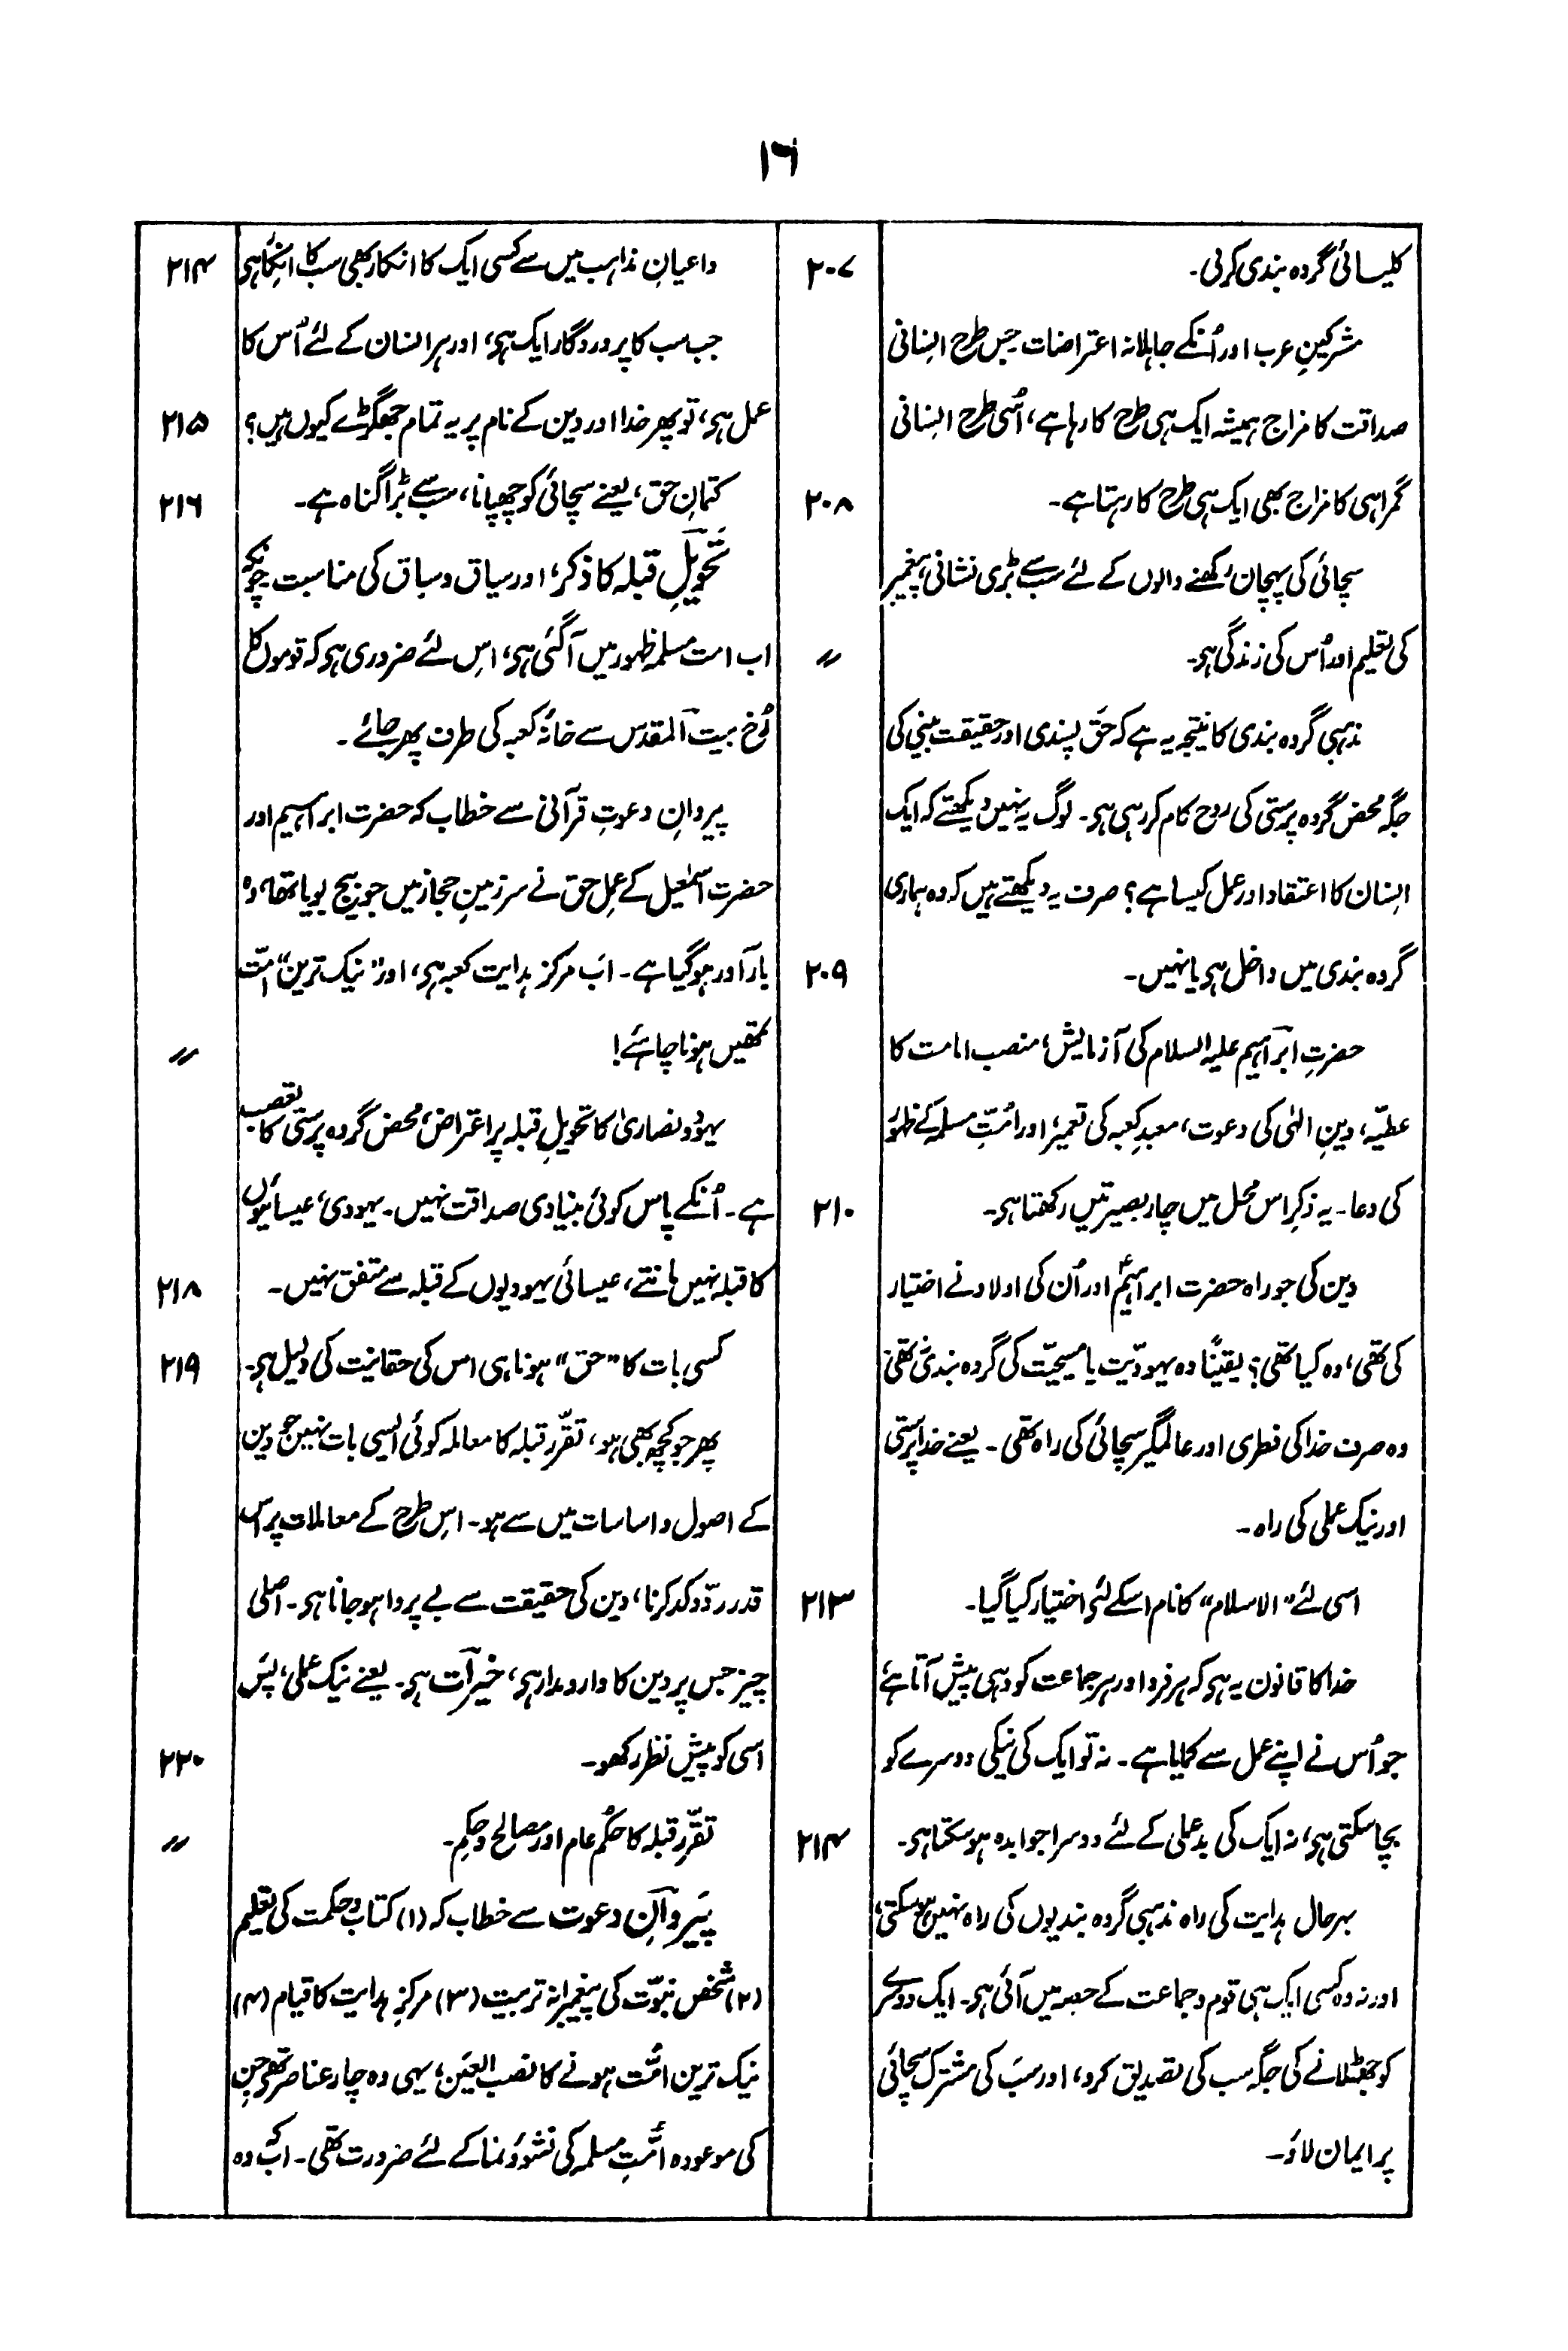 ۱۶
کلیسائی گروہ بندی کرلی۔ ۲۰۷
مشرکینِ عرب اور اُنکے جاہلانہ اعتراضات جس طرح انسانی
صداقت کا مزاج ہمیشہ ایک ہی طرح کا رہا ہے، اُسی طرح انسانی
گمراہی کا مزاج بھی ایک ہی طرح کا رہتا ہے۔ ۲۰۸
سچائی کی پہچان رکھنے والوں کے لئے سب سے بڑی نشانی، پیغمبر
کی تعلیم اور اُس کی زندگی ہی۔ 〃
مذہبی گروہ بندی کا نتیجہ یہ ہے کہ حق پسندی اور حقیقت بینی کی
جگہ محض گروہ پرستی کی روح کام کر رہی ہی۔ لوگ یہ نہیں دیکھتے کہ ایک
انسان کا اعتقاد اور عمل کیسا ہے؟ صرف یہ دیکھتے ہیں کہ وہ ہماری
گروہ بندی میں داخل ہی یا نہیں۔ ۲۰۹
حضرتِ ابراہیم علیہ السلام کی آزمایش، منصب امامت کا
عطیّہ، دینِ الہٰی کی دعوت، معبدِ کعبہ کی تعمیر، اور اُمّتِ مسلمہ کے ظہور
کی دعا۔ یہ ذکر اس محل میں چار بصیرتیں رکھتا ہی۔ ۲۱۰
دین کی جو راہ حضرت ابراہیمؑ اور اُن کی اولاد نے اختیار
کی تھی، وہ کیا تھی؟ یقیناً وہ یہودیّت یا مسیحیّت کی گروہ بندی نہ تھی
وہ صرف خدا کی فطری اور عالمگیر سچائی کی راہ تھی۔ یعنے خدا پرستی
اور نیک عملی کی راہ۔
اسی لئے "الاسلام" کا نام اسکے لئے اختیار کیا گیا۔ ۲۱۳
خدا کا قانون یہ ہی کہ ہر فرد اور ہر جماعت کو وہی پیش آتا ہے
جو اُس نے اپنے عمل سے کمایا ہے۔ نہ تو ایک کی نیکی دوسرے کو
بچا سکتی ہی، نہ ایک کی بد عملی کے لئے دوسرا جوابدہ ہو سکتا ہی۔ ۲۱۴
بہر حال ہدایت کی راہ مذہبی گروہ بندیوں کی راہ نہیں ہو سکتی،
اور نہ وہ کسی ایک ہی قوم و جماعت کے حصہ میں آئی ہی۔ ایک دوسرے
کو جھٹلانے کی جگہ سب کی تصدیق کرو، اور سب کی مشترک سچائی
پر ایمان لاؤ۔
داعیانِ مذاہب میں سے کسی ایک کا انکار بھی سب کا انکار ہی ۲۱۴
جب سب کا پروردگار ایک ہی، اور ہر انسان کے لئے اُس کا
عمل ہی، تو پھر خدا اور دین کے نام پر یہ تمام جھگڑے کیوں ہیں؟ ۲۱۵
کتمانِ حق، یعنے سچائی کو چھپانا، سب سے بڑا گناہ ہے۔ ۲۱۶
تحویلِ قبلہ کا ذکر، اور سیاق و سباق کی مناسبت چونکہ
اب امت مسلمہ ظہور میں آگئی ہی، اِس لئے ضروری ہی کہ قوموں کا
رُخ بیت المقدس سے خانۂ کعبہ کی طرف پھر جائے۔
پیروانِ دعوتِ قرآنی سے خطاب کہ حضرت ابراہیم اور
حضرت اسمٰعیل کے عملِ حق نے سر زمینِ حجاز میں جو بیج بویا تھا، وہ
بار آور ہو گیا ہے۔ اب مرکز ہدایت کعبہ ہی، اور "نیک ترین" امّت
تمھیں ہونا چاہئے! 〃
یہود و نصاریٰ کا تحویلِ قبلہ پر اعتراض، محض گروہ پرستی کا تعصب
ہے۔ اُنکے پاس کوئی بنیادی صداقت نہیں۔ یہودی، عیسائیوں
کا قبلہ نہیں مانتے، عیسائی یہودیوں کے قبلہ سے متفق نہیں۔ ۲۱۸
کسی بات کا "حق" ہونا ہی اس کی حقانیت کی دلیل ہی۔ ۲۱۹
پھر جو کچھ بھی ہو، تقرّر قبلہ کا معاملہ کوئی ایسی بات نہیں جو دین
کے اصول و اساسات میں سے ہو۔ اِس طرح کے معاملات پر اس
قدر ردّ و کد کرنا، دین کی حقیقت سے بے پروا ہو جانا ہی۔ اصلی
چیز جس پر دین کا دارومدار ہی، خیرات ہی۔ یعنے نیک عملی، پس
اسی کو پیش نظر رکھو۔ ۲۲۰
تقرّرِ قبلہ کا حکُم عام اور مصالح و حِکم۔ 〃
پیروانِ دعوت سے خطاب کہ (۱) کتاب و حکمت کی تعلیم
(۲) شخص نبوّت کی پیغمبرانہ تربیت (۳) مرکزِ ہدایت کا قیام (۴)
نیک ترین اُمّت ہونے کا نصب العین، یہی وہ چار عناصر تھے جن
کی موعودہ اُمّتِ مسلمہ کی نشو و نما کے لئے ضرورت تھی۔ اب کہ وہ